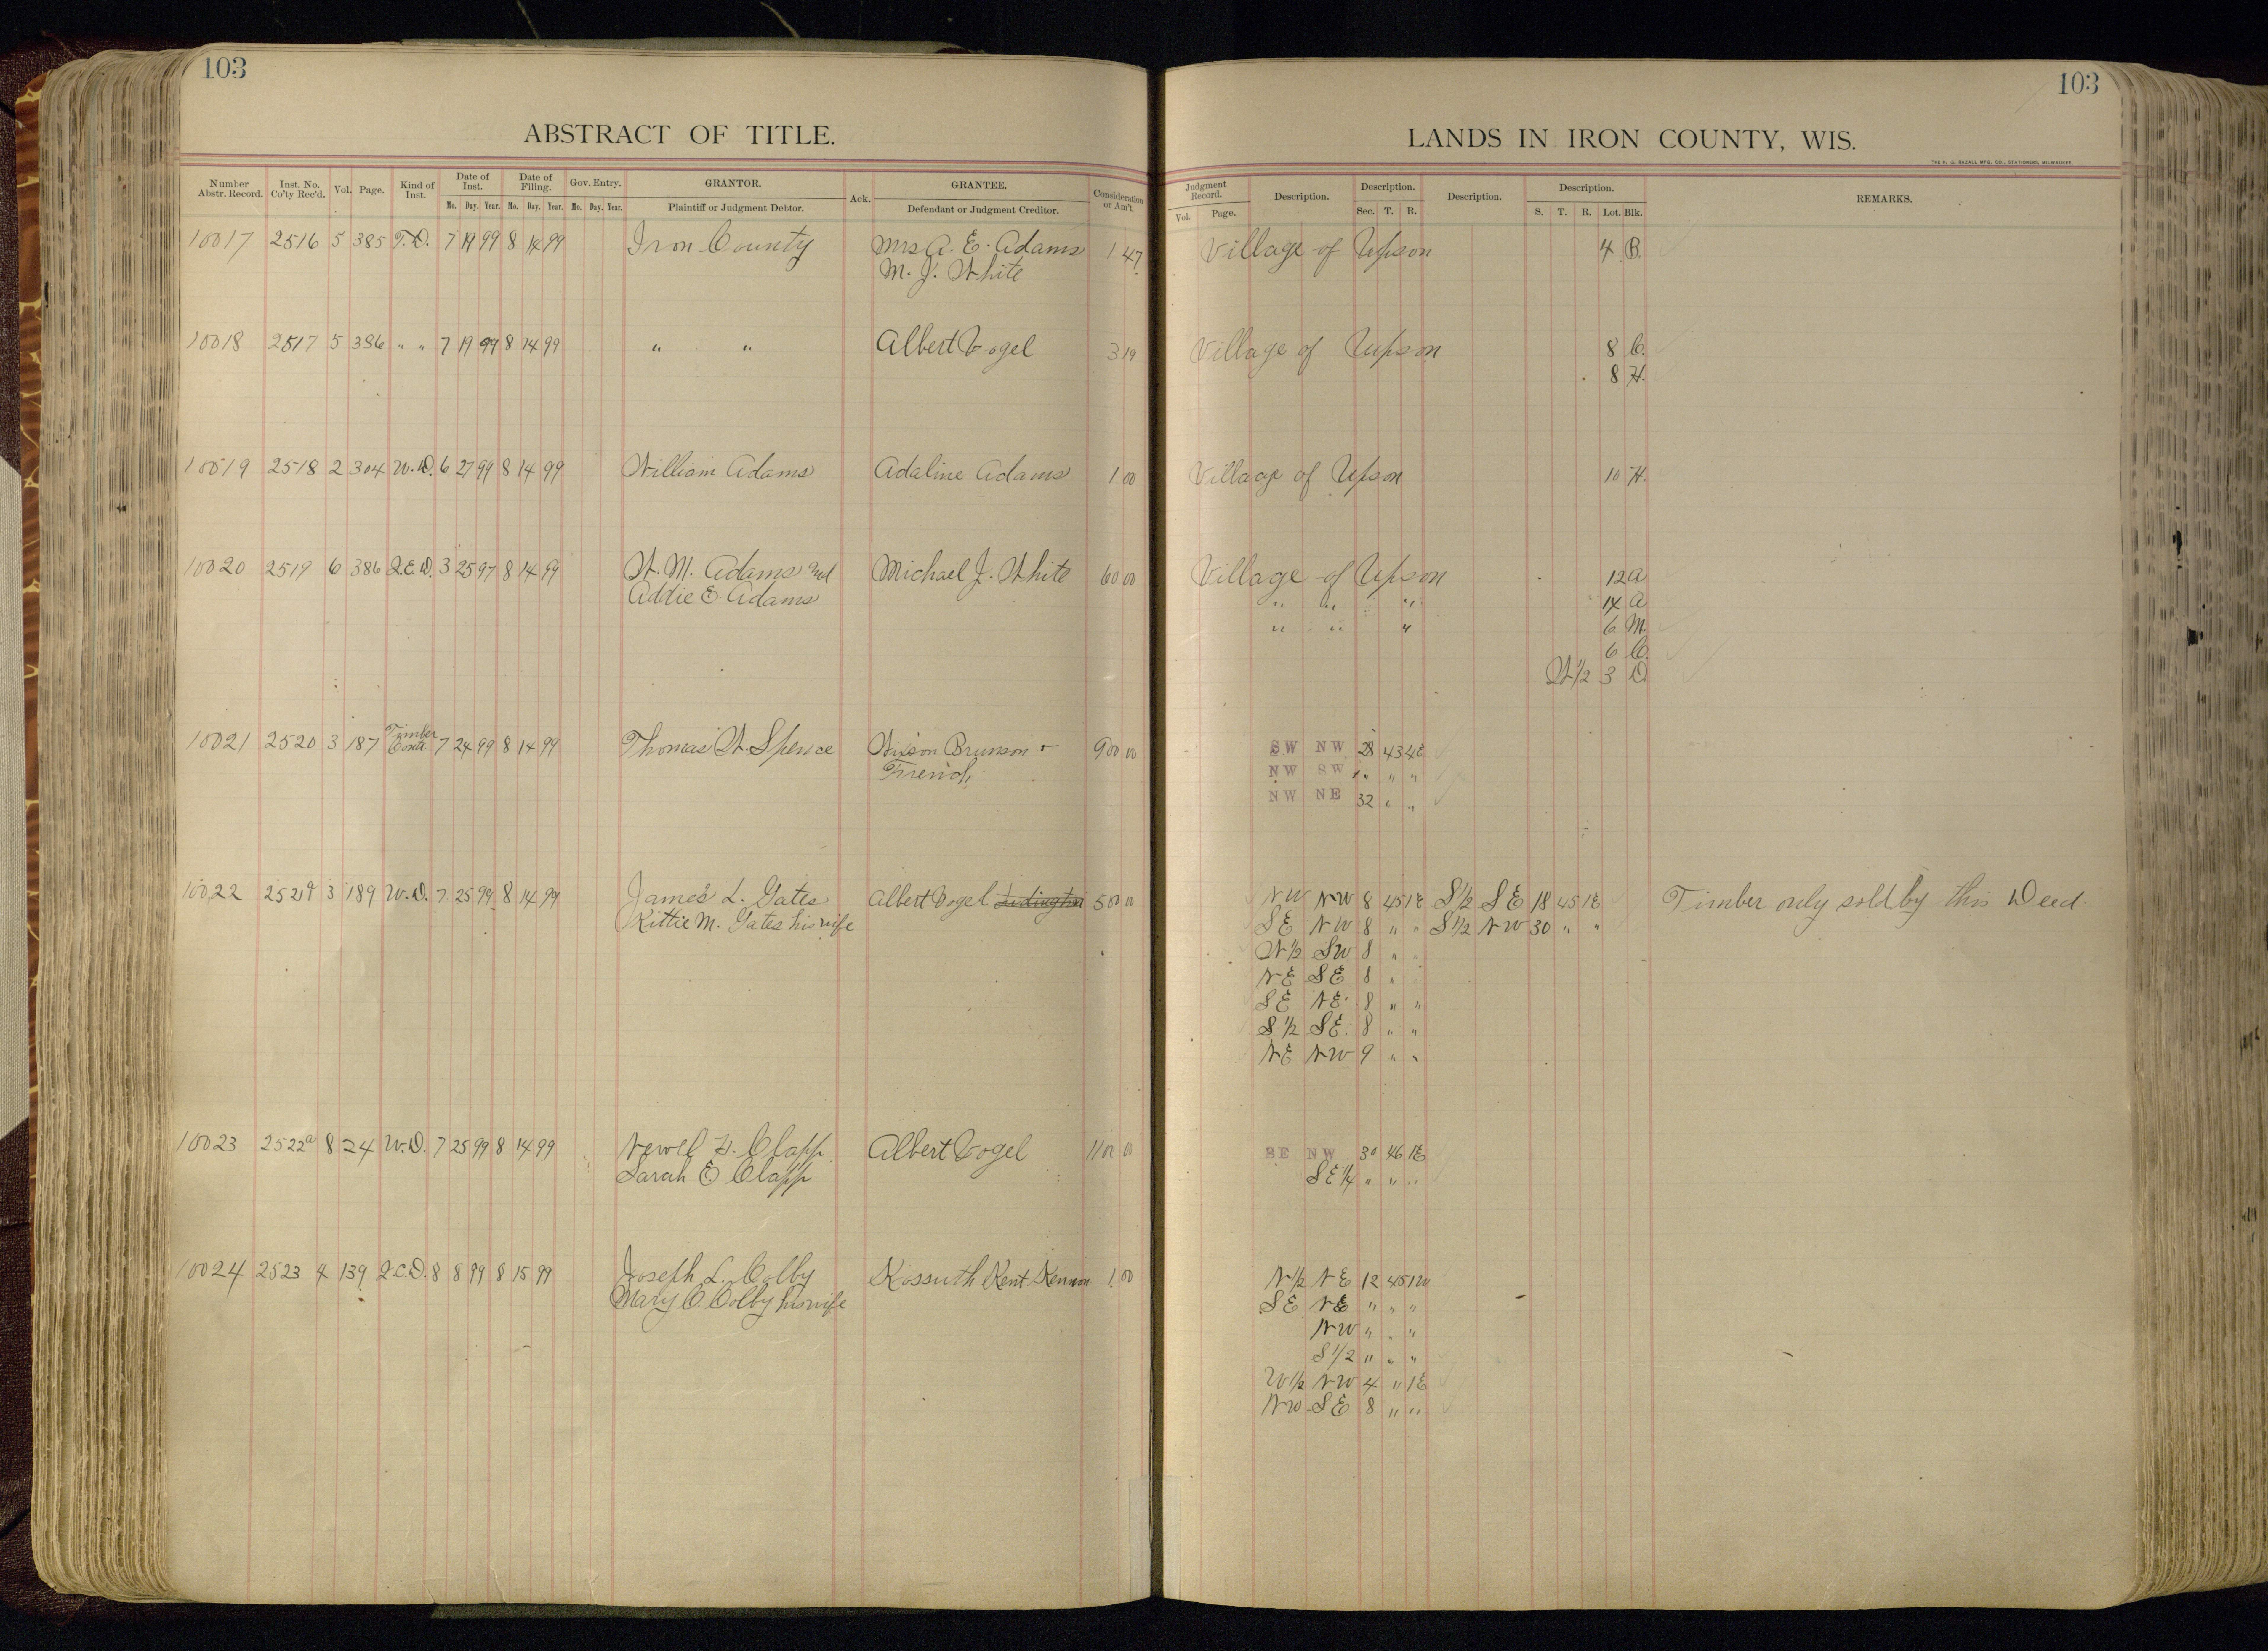 103
103
ABSTRACT OF TITLE.
LANDS IN IRON COUNTY, WIS.
THE H. G. RAZALL MFG. CO., STATIONERS, MILWAUKEE.
Number Abstr. Record. Inst. No. Co'ty Rec'd. Vol. Page. Kind of Inst. Date of Inst. Mo. Day. Year. Date of Filing. Mo. Day. Year. Gov. Entry. Mo. Day. Year. GRANTOR. Plaintiff or Judgment Debtor. Ack. GRANTEE. Defendant or Judgment Creditor. Consideration or Am't.
Judgment Record. Vol. Page. Description. Description. Sec. T. R. Description. Description. S. T. R. Lot. Blk. REMARKS.
10017 2516 5 385 T.D. 7 19 99 8 14 99 Iron County Mrs A. E. Adams 1 47 Village of Upson 4 B.
M. J. White
10018 2517 5 386 " " 7 19 99 8 14 99 " " Albert Vogel 3 19 Village of Upson 8 C.
8 H.
10019 2518 2 304 W.D. 6 27 99 8 14 99 William Adams Adaline Adams 1 00 Village of Upson 10 H.
10020 2519 6 386 Q.C.D. 3 25 97 8 14 99 W. M. Adams and Michael J. White 60 00 Village of Upson 12 A
Addie E. Adams " " " 14 A
" " " 6 M.
6 C.
W1/2 3 D
10021 2520 3 187 Timber 7 24 99 8 14 99 Thomas W. Spence Brunson + 900 00 SW NW 28 43 4E
French NW SW " " "
NW NE 32 " "
10022 3 189 W.D. 7 25 99 8 14 99 James L. Gates Albert Vogel 500 00 NW NW 8 45 1E S1/2 SE 18 45 1E Timber only sold by this Deed.
Kittie M. Gates his wife SE NW 8 " " S1/2 NW 30 " "
N1/2 SW 8 " "
NE SE 8 "
SE NE 8 " "
S1/2 SE 8 " "
NE NW 9 " "
10023 2522a 8 24 W.D. 7 25 99 8 14 99 Newel H. Clapp Albert Vogel 1100 00 SE NW 30 46 1E
Sarah E. Clapp SE1/4 " " "
10024 2523 4 139 Q.C.D. 8 8 99 8 15 99 Joseph L. Colby Kossuth Kent Kennan 1.00 N1/2 NE 12 45 1W
Mary C. Colby his wife SE NE " " "
NW " " "
S1/2 " " "
W1/2 NW 4 " 1E
NW SE 8 " "